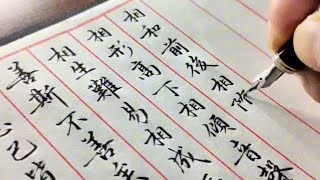 相和前後相
相形高下相傾音聲
相生難易相成
善斯不善
已皆